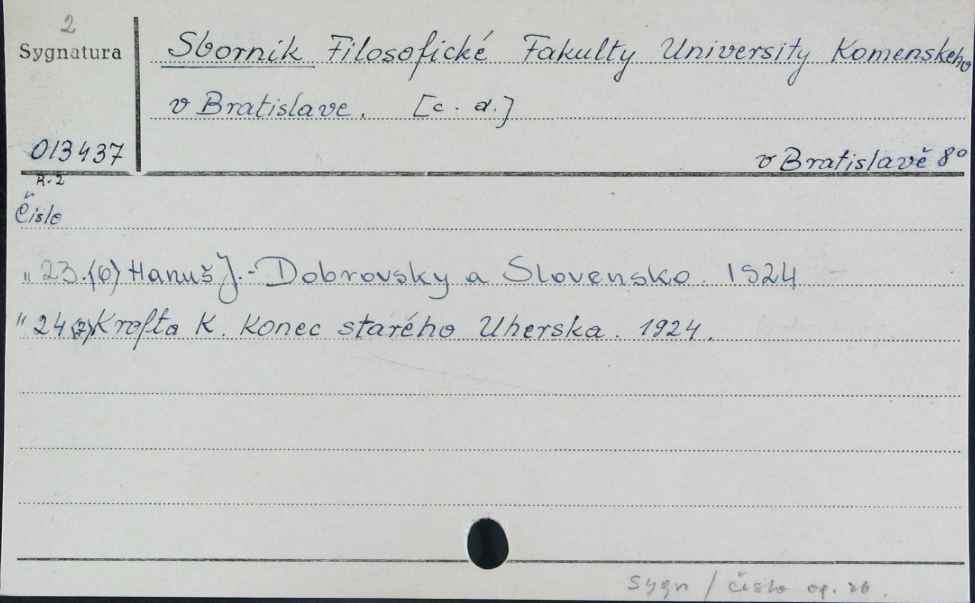 2
Sygnatura
Sbornik Filosofické Fakulty University Komenskeho
v Bratislave. [c. d.]
013437
v Bratislavě 8º
R-2
Čislo
" 23.(6) Hanuš J. - Dobrovsky a Slovensko. 1924
" 24(7) Krofta K. Konec starého Uherska. 1924.
Sygn / čislo op.